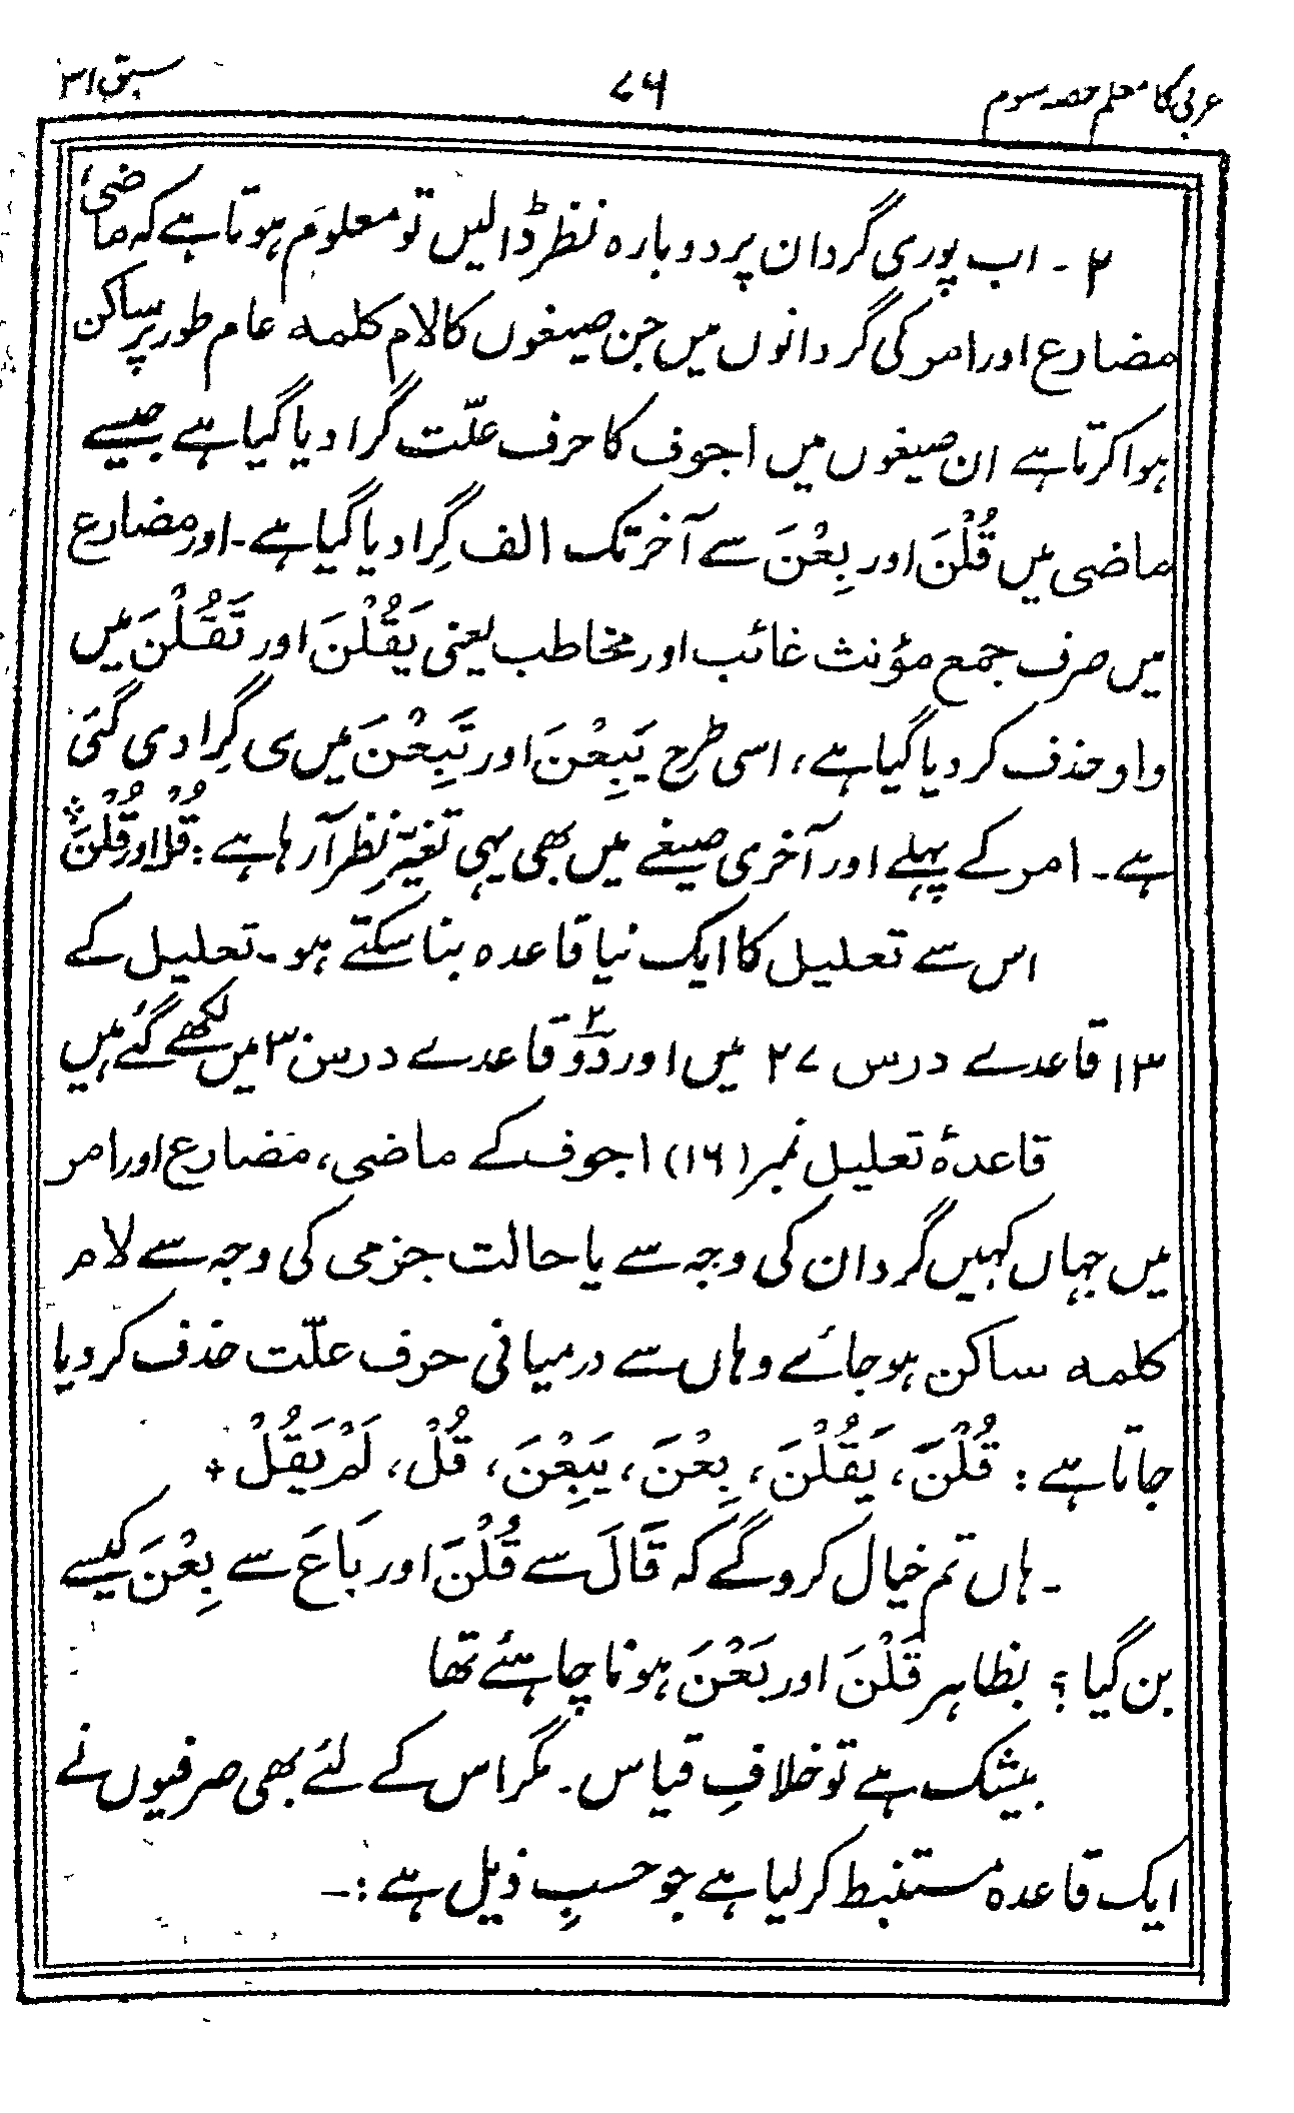 عربی کا معلم حصہ سوم ۷۶ سبق ۳۱
۲ ۔ اب پوری گردان پر دوبارہ نظر ڈالیں تو معلوم ہوتا ہے کہ ماضی،
مضارع اور امر کی گردانوں میں جن صیغوں کا لام کلمہ عام طور پر ساکن
ہوا کرتا ہے ان صیغوں میں اجوف کا حرف علّت گرا دیا گیا ہے جیسے
ماضی میں قُلْنَ اور بِعْنَ سے آخر تک الف گِرا دیا گیا ہے۔ اور مضارع
میں صرف جمع مؤنث غائب اور مخاطب یعنی یَقُلْنَ اور تَقُلْنَ میں
واو حذف کر دیا گیا ہے، اسی طرح یَبِعْنَ اور تَبِعْنَ میں ی گِرا دی گئی
ہے۔ امر کے پہلے اور آخری صیغے میں بھی یہی تغیّر نظر آرہا ہے : قُلْ اور قُلْنَ
اس سے تعلیل کا ایک نیا قاعدہ بنا سکتے ہو۔ تعلیل کے
۱۳ قاعدے درس ۲۷ میں اور دو۲ قاعدے درس ۳ میں لکھے گئے ہیں
قاعدۂ تعلیل نمبر (۱۶) اجوف کے ماضی، مضارع اور امر
میں جہاں کہیں گردان کی وجہ سے یا حالت جزمی کی وجہ سے لام
کلمہ ساکن ہوجائے وہاں سے درمیانی حرف علّت حذف کر دیا
جاتا ہے : قُلْنَ، یَقُلْنَ، بِعْنَ، یَبِعْنَ، قُلْ، لَمْ یَقُلْ +
۔ ہاں تم خیال کروگے کہ قَالَ سے قُلْنَ اور بَاعَ سے بِعْنَ کیسے
بن گیا ؟ بظاہر قَلْنَ اور بَعْنَ ہونا چاہئے تھا
بیشک ہے تو خلافِ قیاس ۔ مگر اس کے لئے بھی صرفیوں نے
ایک قاعدہ مستنبط کر لیا ہے جو حسبِ ذیل ہے :۔